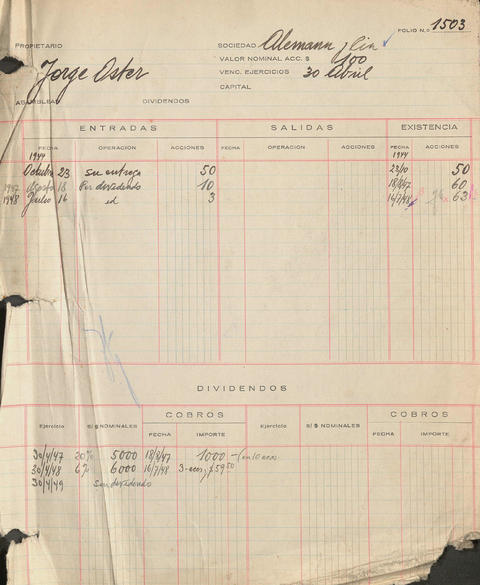 FOLIO N.o 1503
PROPIETARIO
SOCIEDAD Alemann y Cia
VALOR NOMINAL ACC. $ 100
Jorge Oster
VENC. EJERCICIOS 30 Abril
CAPITAL
ASAMBLEA DIVIDENDOS
ENTRADAS SALIDAS EXISTENCIA
FECHA OPERACION ACCIONES FECHA OPERACION ACCIONES FECHA ACCIONES
1944 1944
Octubre 23 su entrega 50 23/10 50
1947 Agosto 18 Por dividendo 10 18/8/47 60
1948 Julio 16 id 3 16/7/48 63
DIVIDENDOS
Ejercicio S/$ NOMINALES COBROS Ejercicio S/$ NOMINALES COBROS
FECHA IMPORTE FECHA IMPORTE
30/4/47 20% 5000 18/8/47 1000 - (en 10 acc.
30/4/48 6% 6000 16/7/48 3 acc. y $59.50
30/4/49 sin dividendo